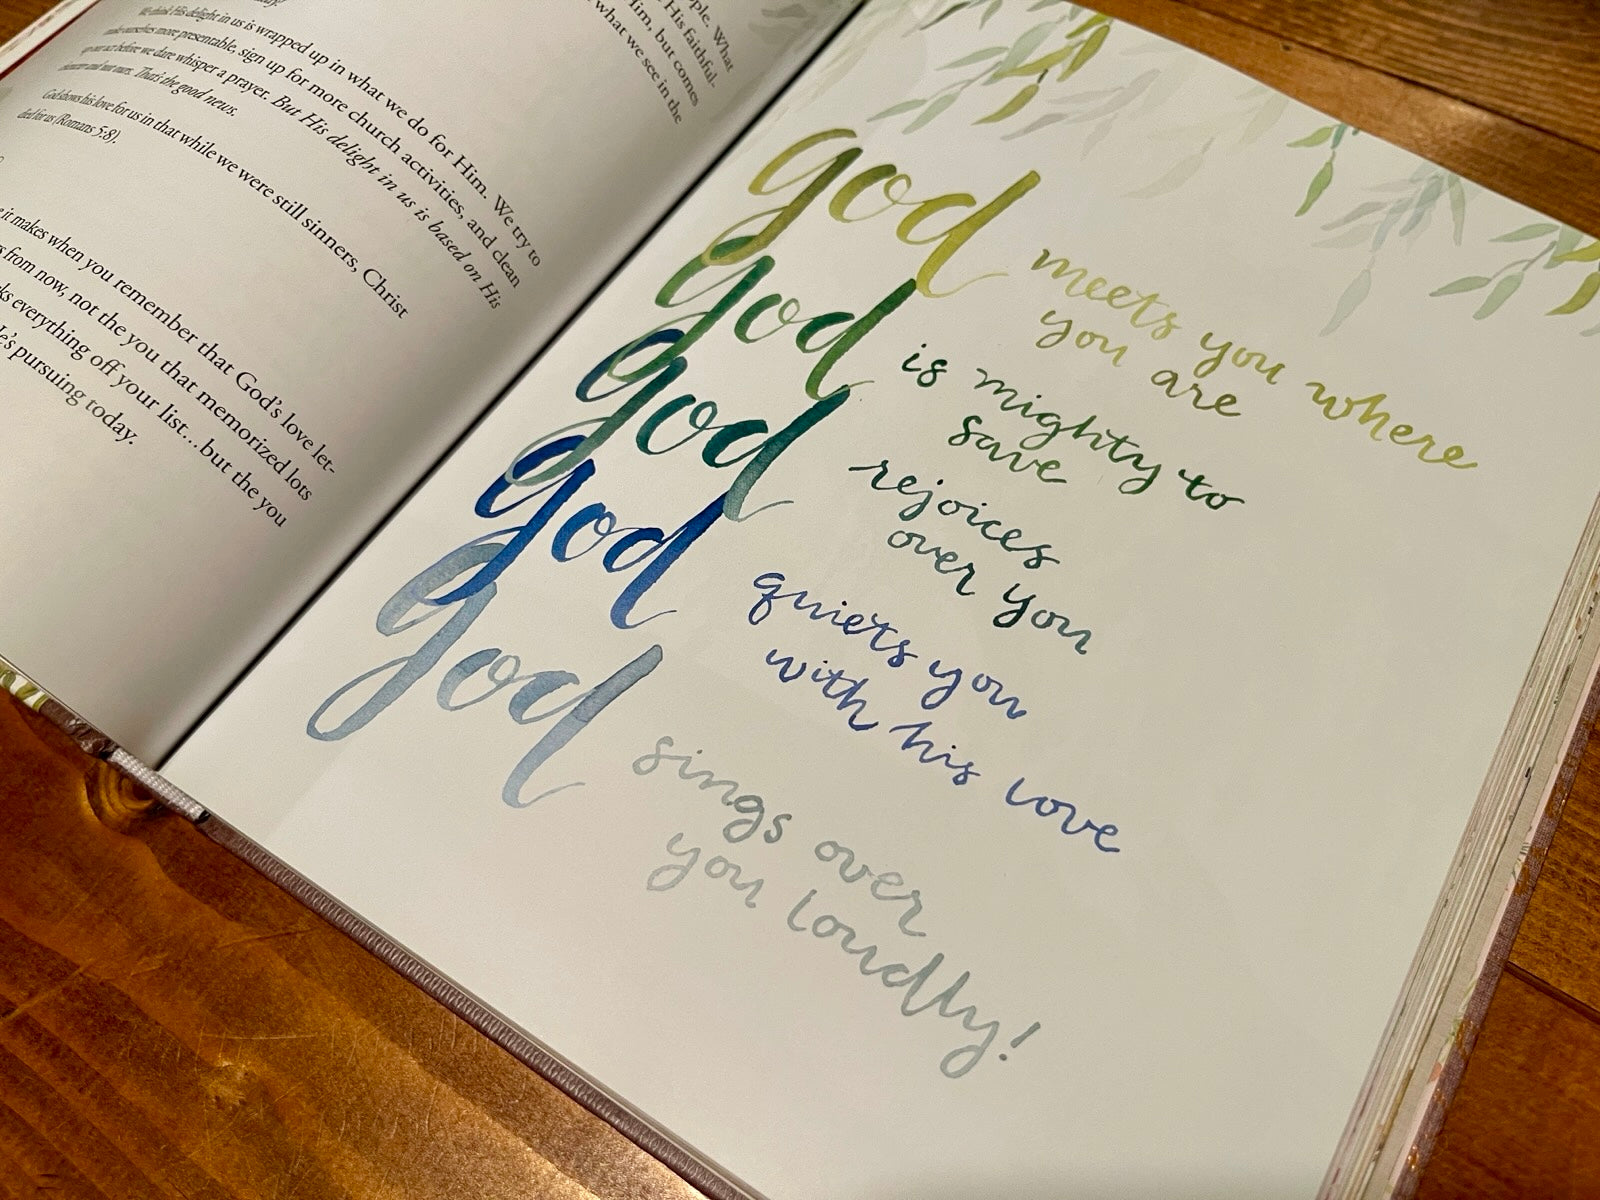 We think His delight in us is wrapped up in what we do for Him. We try to
make ourselves more presentable, sign up for more church activities, and clean
up our act before we dare whisper a prayer. But His delight in us is based on His
character and not ours. That's the good news.
God shows his love for us in that while we were still sinners, Christ
died for us (Romans 5:8).
it makes when you remember that God's love let-
from now, not the you that memorized lots
everything off your list...but the you
He's pursuing today.
What
His faithful-
Him, but comes
what we see in the
god meets you where
you are
god is mighty to
save
god rejoices
over you
god quiets you
with his love
god sings over
you loudly!